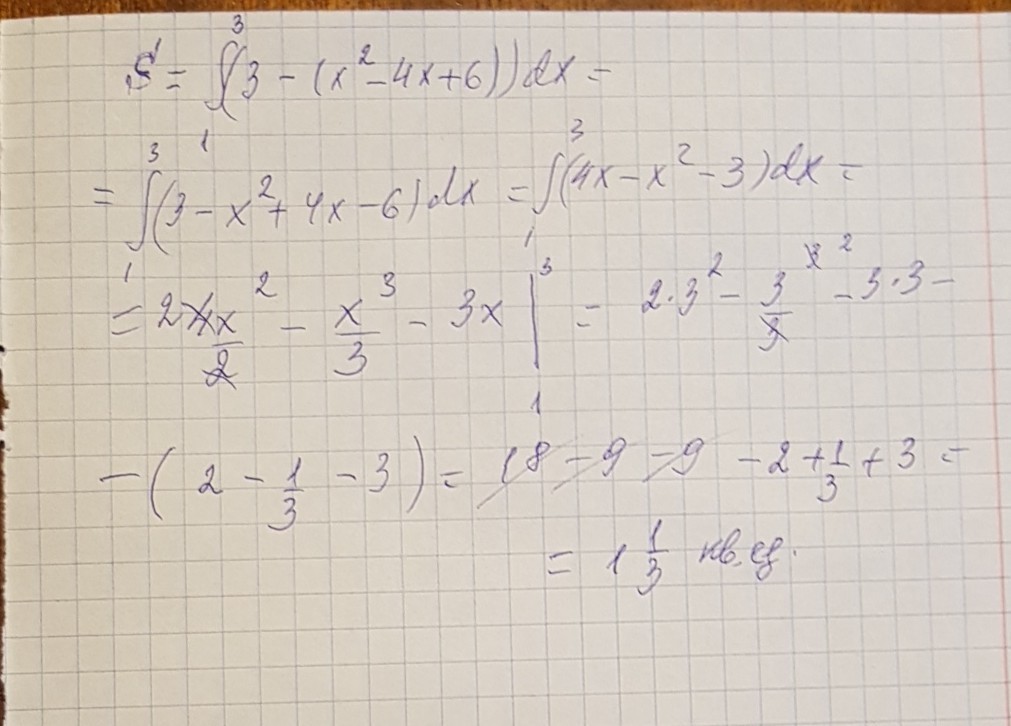 S = ∫₁³(3 - (x² - 4x + 6))dx =
= ∫₁³(3 - x² + 4x - 6)dx = ∫₁³(4x - x² - 3)dx =
= 2 4x²/2 - x³/3 - 3x |₁³ = 2·3² - 3^3 2/3 - 3·3 -
- (2 - 1/3 - 3) = 18 - 9 - 9 - 2 + 1/3 + 3 =
= 1 1/3 кв. ед.